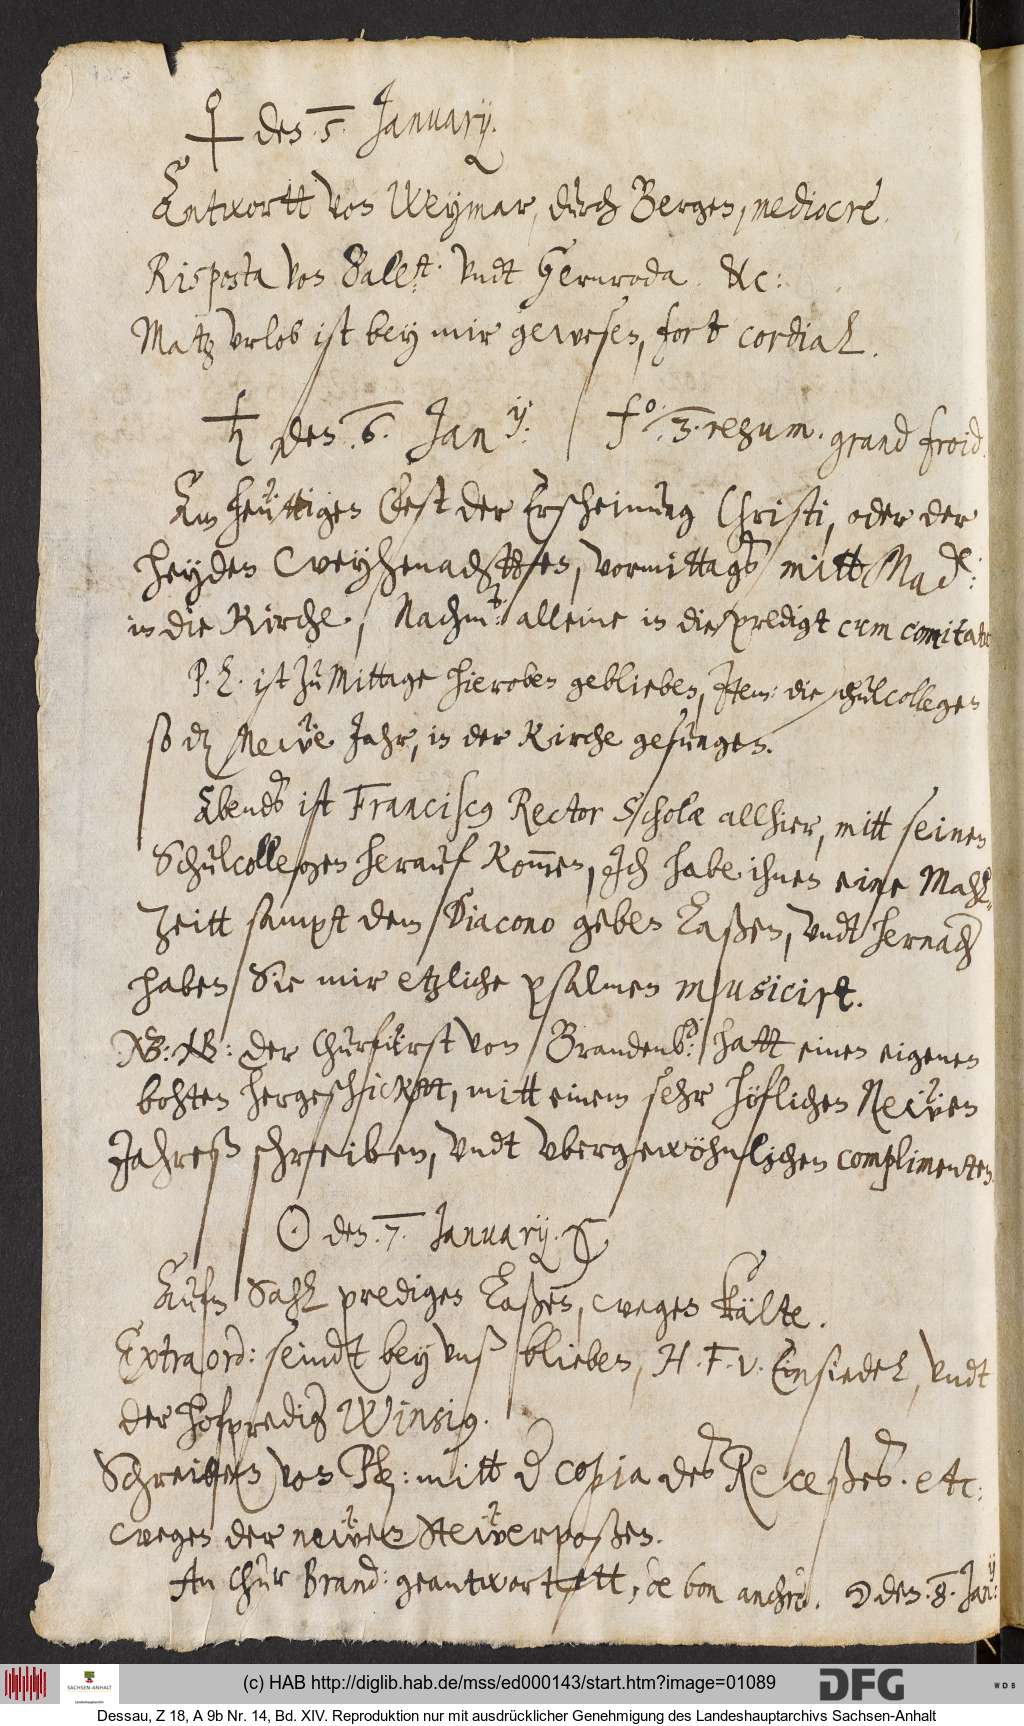 ♀ den .5. Januarij.
Antwortt von Weymar, durch Bergen, mediocre.
Risposta von Balln: vndt Gernroda &c:
Matz Vrlob ist bey mir gewesen, fort cordial.
♄ den .6. Jan ij: 3. regum. grand froid.
Am heüttigen Fest der Erscheinung Christi, oder der
heyden Weyhenachtten, vormittags mitt Made:
in die Kirche, Nachm: alleine in die predigt cum comitatu
P. L. ist zu Mittage hieroben geblieben, Item: die schulcollegen
so dz Newe Jahr, in der Kirche gesungen.
Abends ist Franciscus Rector Scholæ allhier, mitt seinen
Schulcollegen herauf kom̄en, Ich habe ihnen eine Mahl-
zeitt sampt dem Diacono geben laßen, vndt hernach
haben Sie mir etzliche psalmen musicirt.
NB: NB: der Churfürst von Brandenb: hatt einen eigenen
bohten hergeschicktt, mitt einem sehr höflichen Newen
Jahreß schreiben, vndt vbergewöhnlichen complimenten
☉ den .7. Januarij.
Aufm Sahl predigen laßen, wegen kälte.
Extraord: seindt bey vnß blieben, H. F. v. Einsiedel, vndt
der hofpredig Winsius.
Schreiben von Plz: mitt der copia des Receßes. etc:
wegen der newen Stewerpoßen.
An Chur Brand: geantwortett, de bon anchre. ☽ den .8. Jan ij:
(c) HAB http://diglib.hab.de/mss/ed000143/start.htm?image=01089
SACHSEN-ANHALT
DFG
WDB
Dessau, Z 18, A 9b Nr. 14, Bd. XIV. Reproduktion nur mit ausdrücklicher Genehmigung des Landeshauptarchivs Sachsen-Anhalt